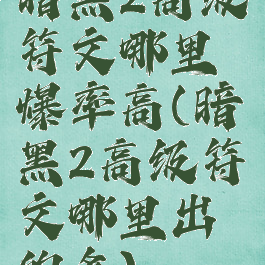 暗黑2高级
符文哪里
爆率高(暗
黑2高级符
文哪里出
的多)